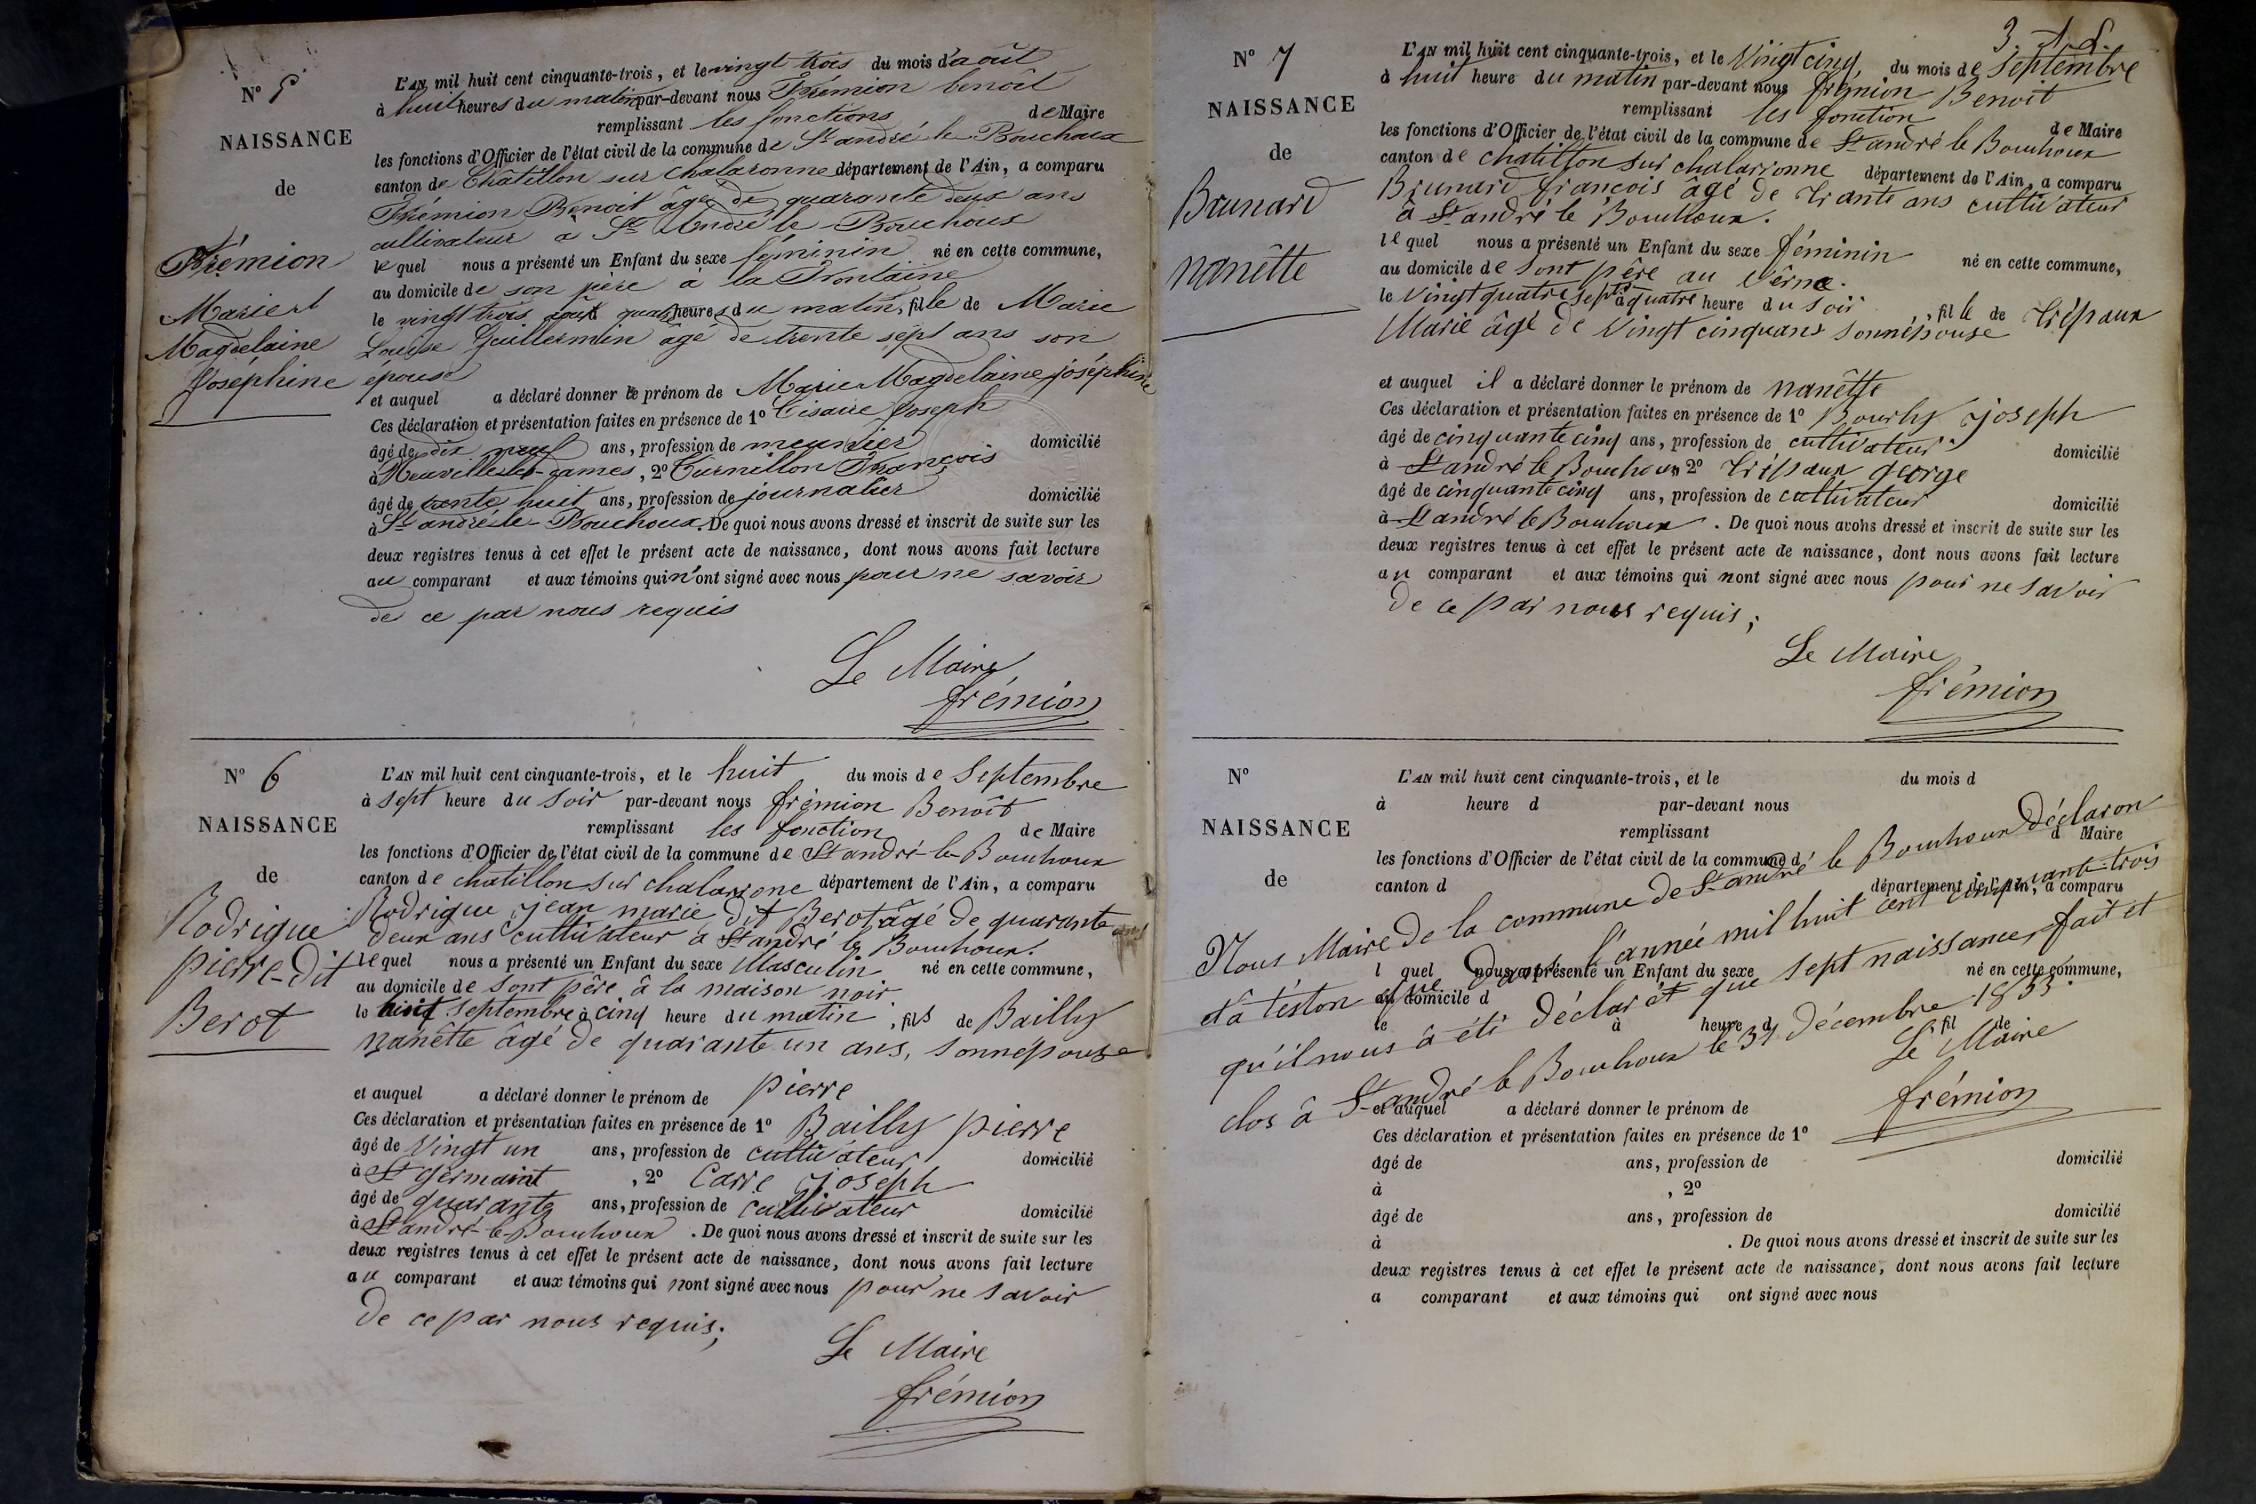 N° 5
NAISSANCE
de
Frémion
Marie
Magdelaine
Joséphine
L'AN mil huit cent cinquante-trois, et le vingt trois du mois d'août
à huit heures du matin par-devant nous Frémion benoît
remplissant les fonctions de Maire
les fonctions d'Officier de l'état civil de la commune de St andré le Bouchoux
canton de Châtillon sur Chalaronne département de l'Ain, a comparu
Frémion Benoit âgé de quarante deux ans
cultivateur a St André le Bouchoux
le quel nous a présenté un Enfant du sexe féminin né en cette commune,
au domicile de son père à la Frontaine
le vingt trois août quatre heures du matin, fille de Marie
Louise Guillermin âgé de trente sept ans son
épouse
et auquel a déclaré donner le prénom de Marie Magdelaine joséphine
Ces déclaration et présentation faites en présence de 1° Tisaire Joseph
âgé de dix neuf ans, profession de meunier domicilié
à Neuville les-Dames, 2° Turnillon François
âgé de trente huit ans, profession de journalier domicilié
à St andré le-Bouchoux. De quoi nous avons dressé et inscrit de suite sur les
deux registres tenus à cet effet le présent acte de naissance, dont nous avons fait lecture
au comparant et aux témoins qui n'ont signé avec nous pour ne savoir
de ce par nous requis
Le Maire
frémion
N° 6
NAISSANCE
de
Rodrigue
pierre-Dit
Berot
L'AN mil huit cent cinquante-trois, et le huit du mois de Septembre
à sept heure du soir par-devant nous frémion Benoît
remplissant les fonction de Maire
les fonctions d'Officier de l'état civil de la commune de St andré le Bouchoux
canton de chatillon sur chalarrone département de l'Ain, a comparu
Rodrigue jean marie dit Berot âgé de quarante
deux ans cultivateur a St andré le Bouchoux.
lequel nous a présenté un Enfant du sexe Masculin né en cette commune,
au domicile de sont père à la maison noir
le huit septembre à cinq heure du matin, fils de Bailly
nanêtte âgé de quarante un ans, sonnépouse
et auquel a déclaré donner le prénom de pierre
Ces déclaration et présentation faites en présence de 1° Bailly pierre
âgé de Vingt un ans, profession de cultivateur domicilié
à St germaint, 2° Carre joseph
âgé de quarante ans, profession de cultivateur domicilié
à St andré le Bouchoux. De quoi nous avons dressé et inscrit de suite sur les
deux registres tenus à cet effet le présent acte de naissance, dont nous avons fait lecture
au comparant et aux témoins qui nont signé avec nous pour ne savoir
de ce par nous requis;
Le Maire
frémion
3.
N° 7
NAISSANCE
de
Brunard
nanêtte
L'AN mil huit cent cinquante-trois, et le Vingt cinq du mois de Septembre
à huit heure du matin par-devant nous frémion Benoit
remplissant les fonction de Maire
les fonctions d'Officier de l'état civil de la commune de St andré le Bouchoux
canton de chatillon sur chalarronne département de l'Ain, a comparu
Brunard françois âgé de trante ans cultivateur
à St andré le Bouchoux.
lequel nous a présenté un Enfant du sexe féminin né en cette commune,
au domicile de sont père au Vêrne.
le Vingt quatre sept à quatre heure du soir, fille de trépaux
Marie âgé de Vingt cinquans sonnépouse
et auquel il a déclaré donner le prénom de nanêtte
Ces déclaration et présentation faites en présence de 1° Bourhy joseph
âgé de cinquante cinq ans, profession de cultivateur domicilié
à St andré le Bouchoux 2° trépaux george
âgé de cinquante cinq ans, profession de cultivateur domicilié
à St andré le Bouchoux. De quoi nous avons dressé et inscrit de suite sur les
deux registres tenus à cet effet le présent acte de naissance, dont nous avons fait lecture
au comparant et aux témoins qui nont signé avec nous pour ne savoir
de ce par nous requis;
Le Maire
frémion
N°
NAISSANCE
de
L'AN mil huit cent cinquante-trois, et le du mois d
à heure d par-devant nous
remplissant d Maire
les fonctions d'Officier de l'état civil de la commune d
canton d département de l'Ain, a comparu
l quel nous a présenté un Enfant du sexe né en cette commune,
au domicile d
le à heure d, fil de
Nous Maire de la commune de St andré le Bouchoux déclaron
et à téston que Dans l'année mil huit cent cinquante-trois
qu'il nous à éti déclarét que sept naissances, fait et
clos à St andré le Bouchoux le 31 décembre 1853.
Le Maire
frémion
et auquel a déclaré donner le prénom de
Ces déclaration et présentation faites en présence de 1°
âgé de ans, profession de domicilié
à , 2°
âgé de ans, profession de domicilié
à . De quoi nous avons dressé et inscrit de suite sur les
deux registres tenus à cet effet le présent acte de naissance, dont nous avons fait lecture
a comparant et aux témoins qui ont signé avec nous